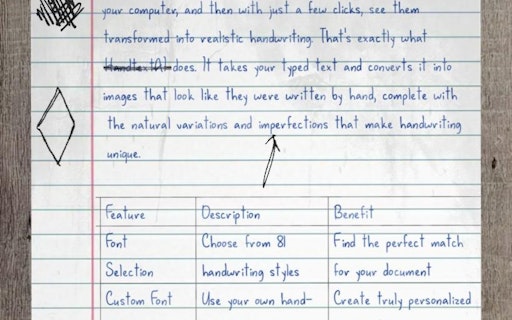 your computer, and then with just a few clicks, see them
transformed into realistic handwriting. That's exactly what
does. It takes your typed text and converts it into
images that look like they were written by hand, complete with
the natural variations and imperfections that make handwriting
unique.
Feature Description Benefit
Font Choose from 81 Find the perfect match
Selection handwriting styles for your document
Custom Font Use your own hand- Create truly personalized